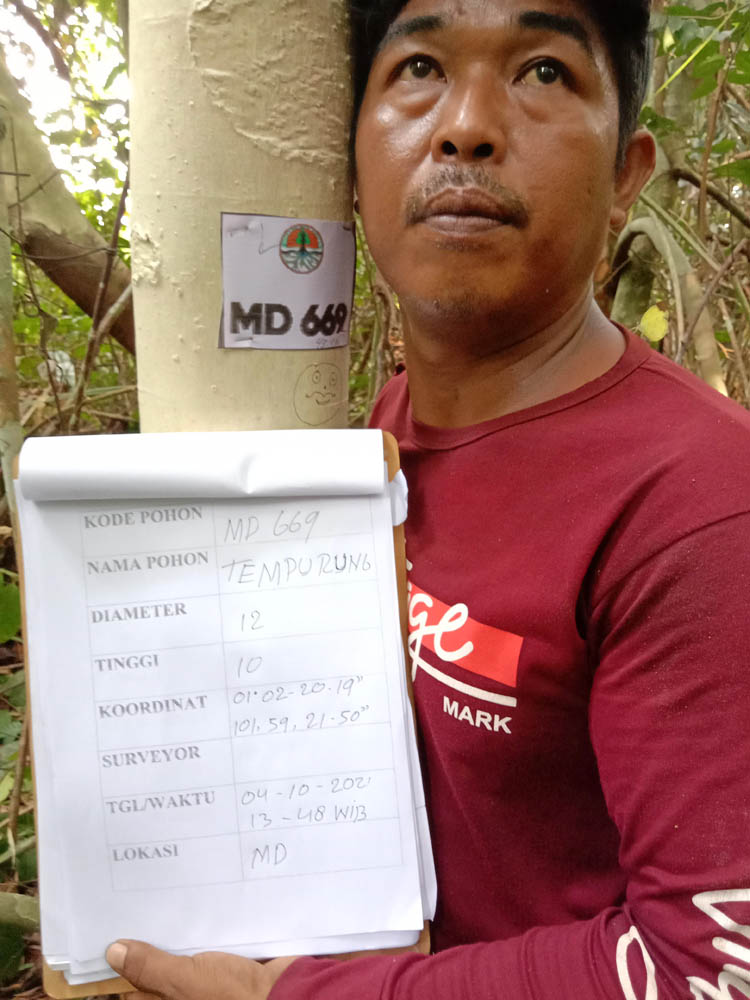 MD 669
KODE POHON MD 669
NAMA POHON TEMPURUNG
DIAMETER 12
TINGGI 10
KOORDINAT 01.02-20.19"
101.59, 21-50"
SURVEYOR
TGL/WAKTU 04-10-2021
13-48 WIB
LOKASI MD
ige
MARK